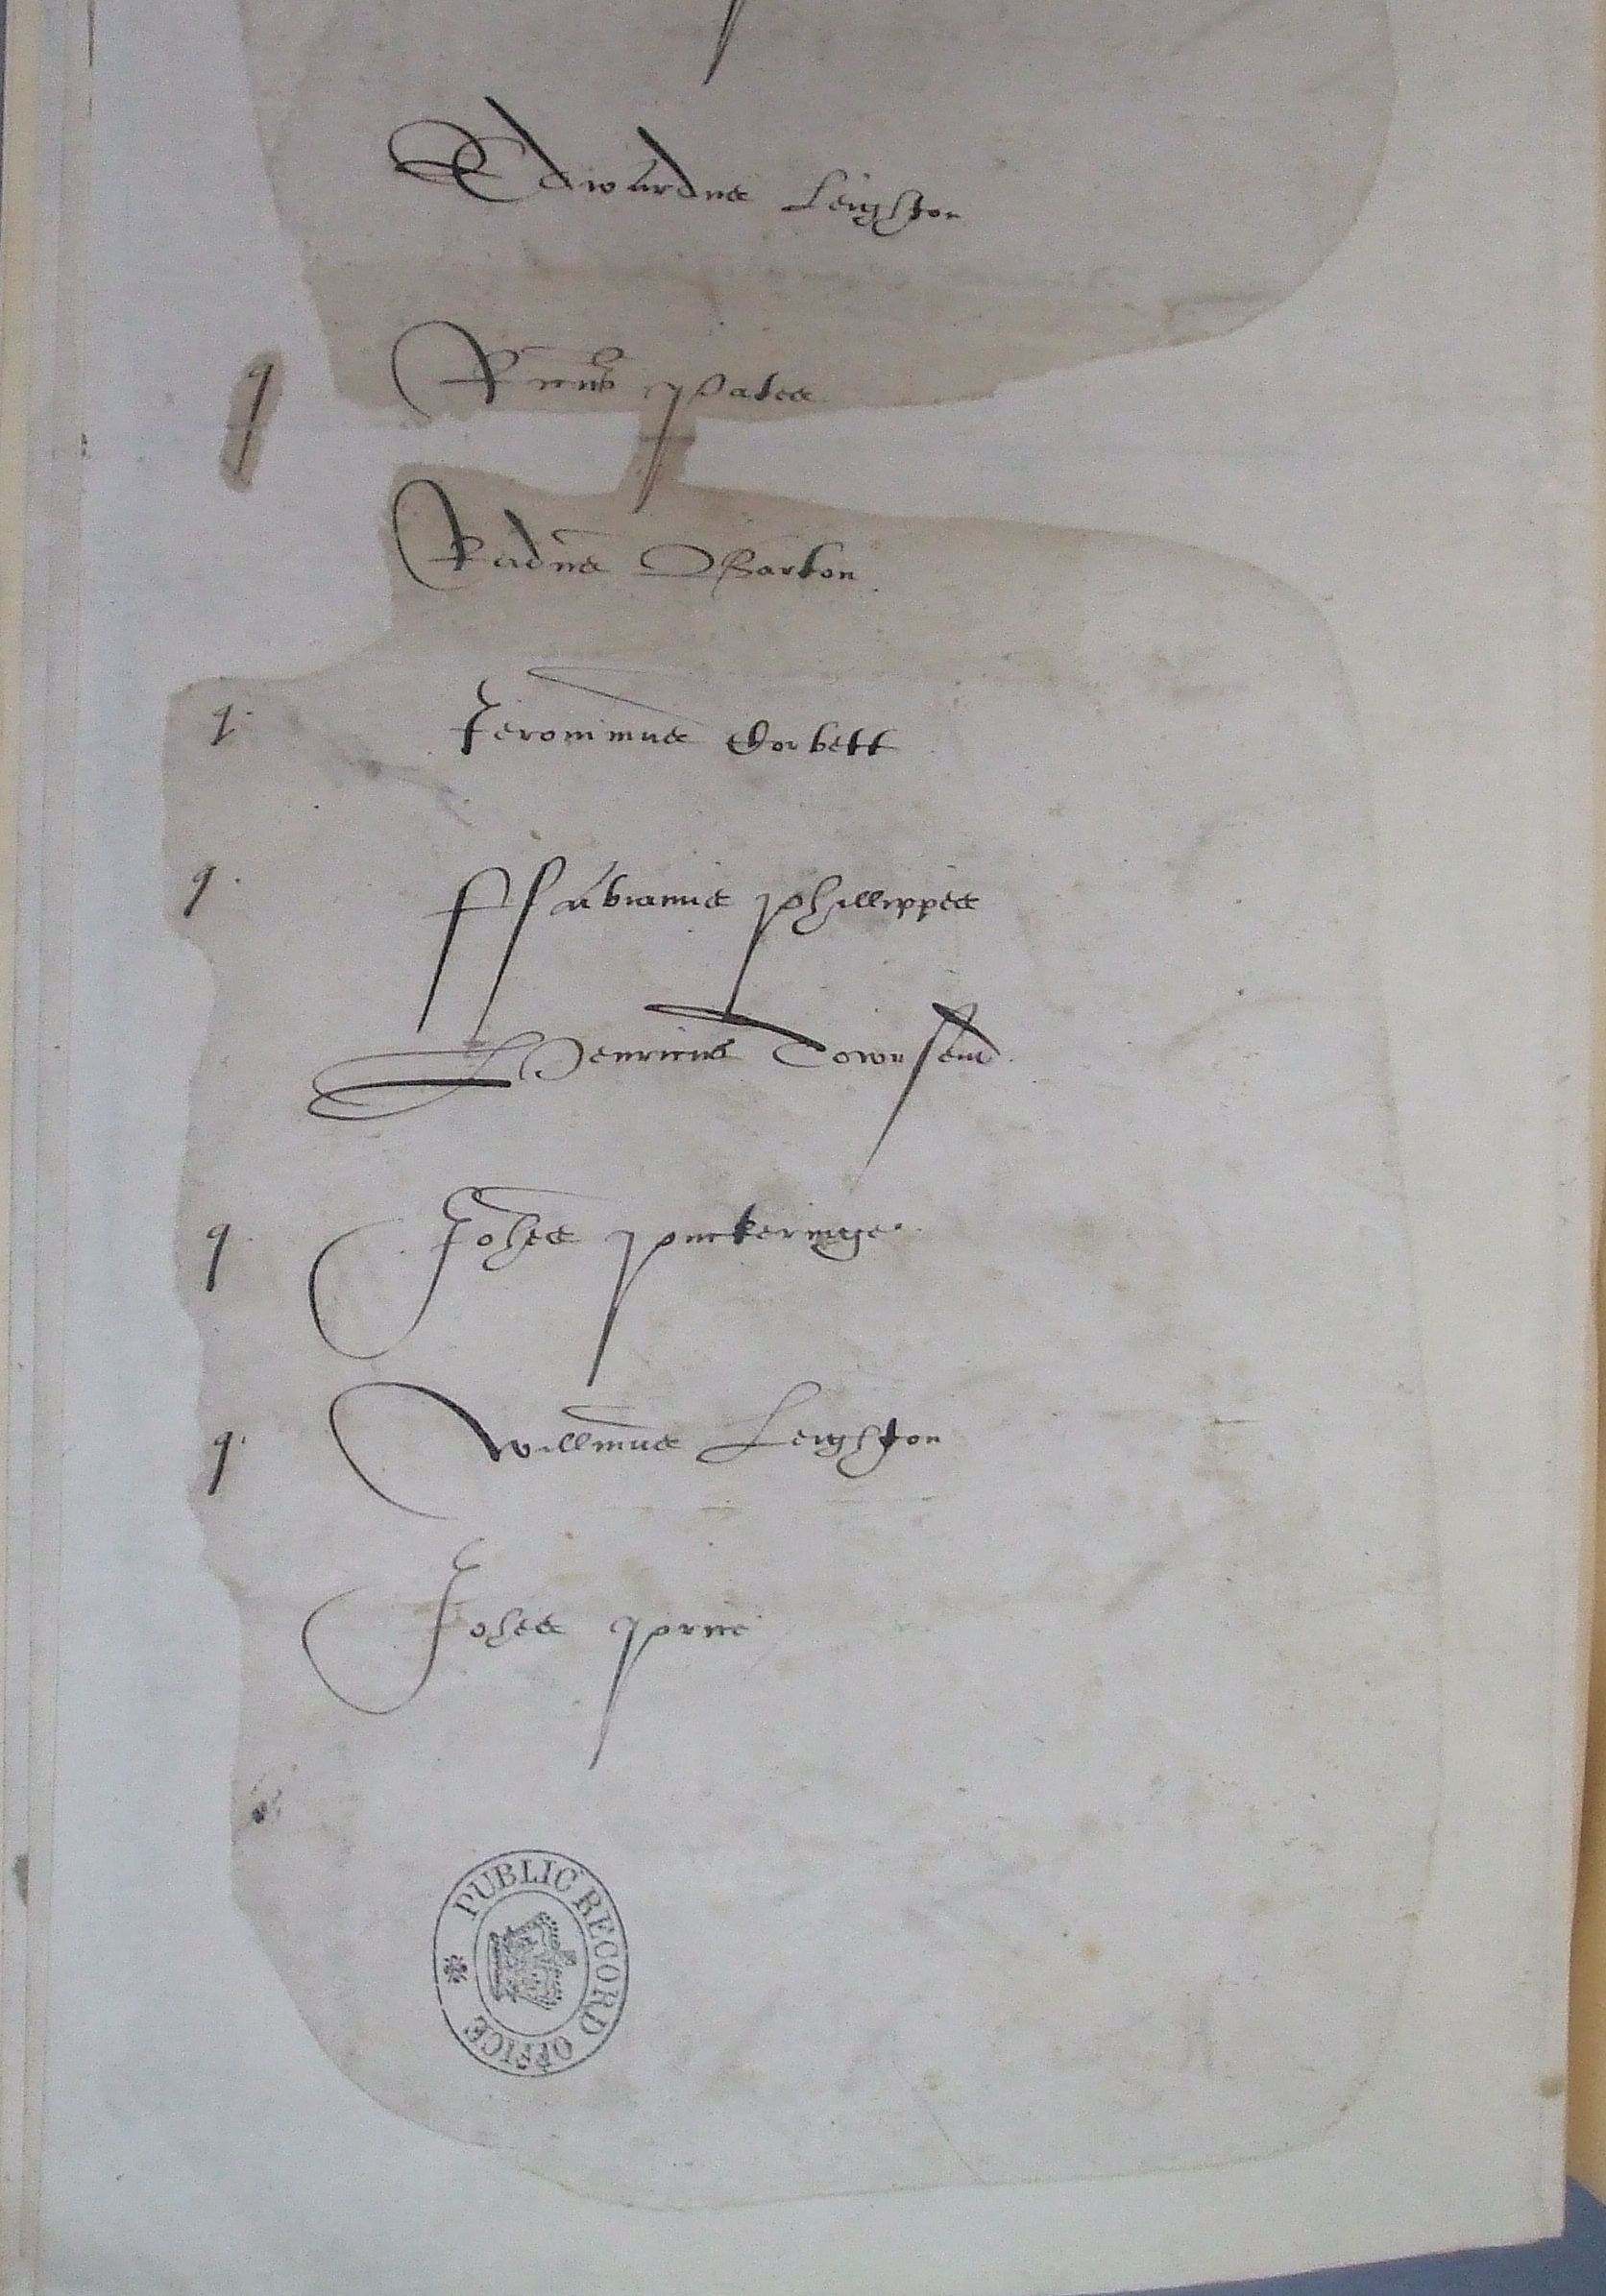 Edwardus Leighton
q Ricus Pates
Radus Barton
q. Jeronimus Corbett
q. ffabianus Phillippes
Henricus Townsend
q Johes Puckeringe
q. Willmus Leighton
Johes Price
PUBLIC RECORD OFFICE